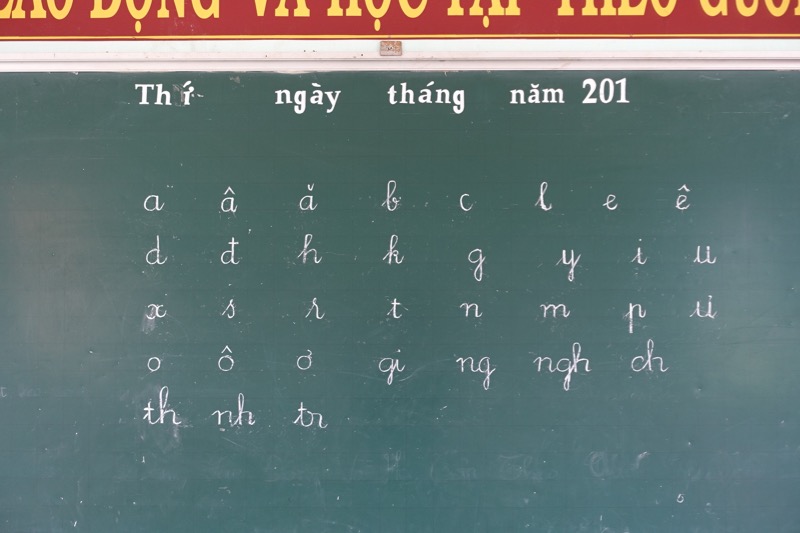 LAO ĐỘNG VÀ HỌC TẬP THEO GƯƠ
Thứ ngày tháng năm 201
a â ă b c l e ê
d đ h k g y i u
x s r t n m p ư
o ô ơ gi ng ngh ch
th nh tr